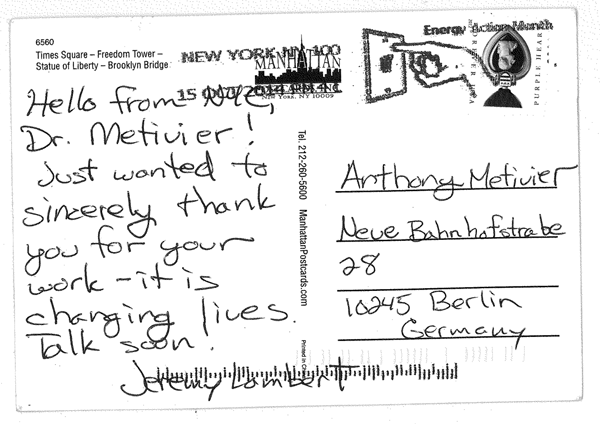 6560
Times Square – Freedom Tower –
Statue of Liberty – Brooklyn Bridge
NEW YORK NY 100
MANHATTAN
NEW YORK, NY 10009
Energy Action Month
PURPLE HEART
Hello from NYC,
Dr. Metivier!
Just wanted to
sincerely thank
you for your
work - it is
changing lives.
Talk soon!
Jeremy Lambert
Tel. 212-260-5600 ManhattanPostcards.com
Printed in China
Anthony Metivier
Neue Bahnhofstraße
28
10245 Berlin
Germany